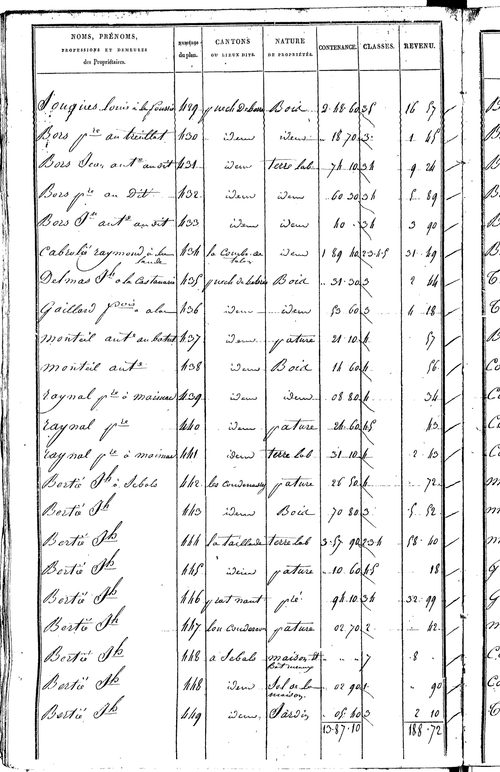 NOMS, PRÉNOMS, PROFESSIONS ET DEMEURES des Propriétaires. NUMÉROS du plan. CANTONS OU LIEUX DITS. NATURE DE PROPRIÉTÉS. CONTENANCE. CLASSES. REVENU.
429 Bois 2 48 60 35 16 57
Bors pre au treillat 430 idem idem 18 70 3 1 65
Bors Jean ante au dit 431 idem terre lab 74 10 34 9 24
Bors pre au Dit 432 idem idem 60 30 34 5 89
Bors Jh ante au dit 433 idem idem 40 34 3 90
Cabrolié raymond à 434 la Combe de idem 1 89 40 2345 31 49
Delmas Jh à la Castanarie 435 Bois 31 30 3 2 44
Gaillard 436 idem idem 53 60 3 4 18
monteil ante au 437 idem pature 21 10 4 57
monteil ante 438 idem Bois 14 60 4 56
raynal pre à 439 idem idem 08 80 4 34
raynal pre 440 idem pature 24 60 45 43
raynal pre à 441 idem terre lab 31 10 4 2 43
Bertié Jh à Sebals 442 pature 26 50 4 72
Bertié Jh 443 idem Bois 70 80 3 5 52
Bertié Jh 444 la taillade terre lab 3 57 90 234 58 40
Bertié Jh 445 idem pature 10 60 45 18
Bertié Jh 446 prat nant pré 94 10 34 32 99
Bertié Jh 447 lou pature 02 70 2 42
Bertié Jh 448 a Sebals maison et Bâtiments 7 8
Bertié Jh 448 idem Sol de la maison 02 90 1 90
Bertié Jh 449 idem Jardin 05 40 3 2 10
13-87-10 188-72